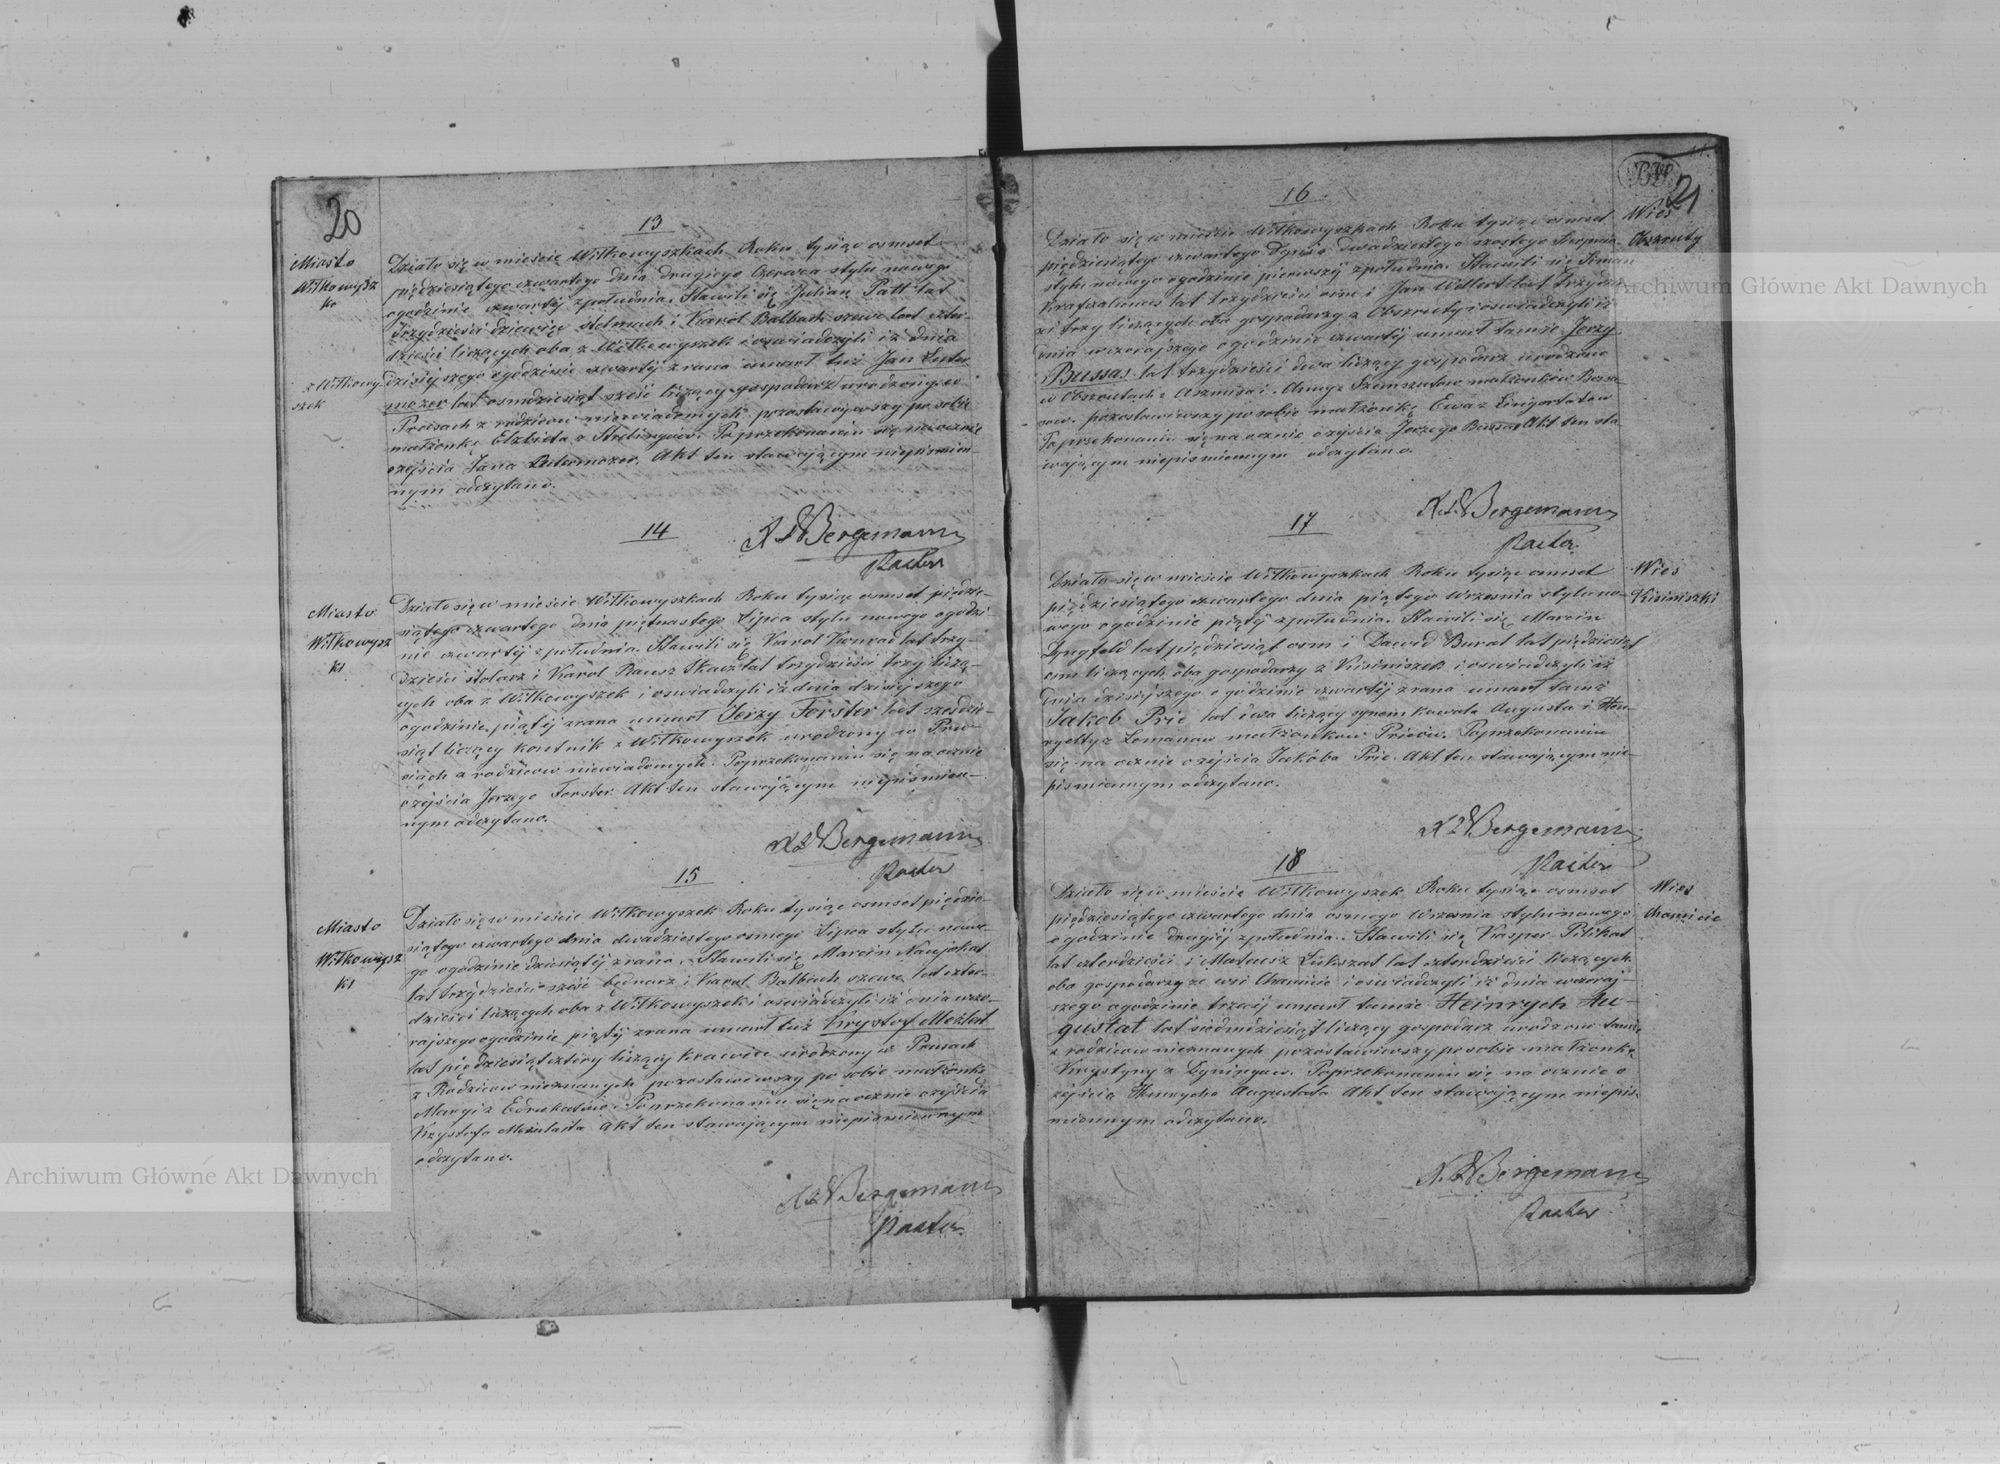 20
13
Miasto
Wiłkowysz
ki
Działo się w mieście Wiłkowyszkach Roku tysiąc osmset
pięćdziesiątego czwartego dnia drugiego Czerwca stylu nowego
ogodzinie czwartej zpołudnia. Stawili się Julian Patt lat
trzydzieści dziewięć stelmach i Karol Balbach szewc lat czter-
dzieści liczących oba z Wiłkowyszek i oswiadczyli iż dnia
z Wiłkowy
szek
dzisiejszego ogodzinie czwartej zrana umarł tuż Jan Luter
mozer lat osmdziesiąt sześć liczący gospodarz urodzony w
Prusach z rodziców niewiadomych pozostawiwszy po sobie
małżonkę Elżbieta z Po przekonaniu się naocznie
ozejścia Jana Lutermozer. Akt ten stawającym niepismien-
nym odczytano.
Bergemann
Pastor
14
Miasto
Wiłkowysz
ki
Działo się w mieście Wiłkowyszkach Roku tysiąc osmset pięćdzie-
siątego czwartego dnia piętnastego Lipca stylu nowego ogodzi-
nie czwartej zpołudnia. Stawili się Karol Konrad lat trzy-
dzieści stolarz i Karol Rausz tkacz lat trzydzieści trzy liczą-
cych oba z Wiłkowyszek i oswiadczyli iż dnia dzisiejszego
ogodzinie piątej zrana umarł Jerzy Forster lat sześdzie-
siąt liczący z Wiłkowyszek urodzony w Pru-
siech z rodziców niewiadomych. Poprzekonaniu się naocznie
ozejścia Jerzego Forster. Akt ten stawającym niepismien-
nym odczytano.
Bergemann
Pastor
15
Miasto
Wiłkowysz
ki
Działo się w mieście Wiłkowyszek Roku tysiąc osmset pięćdzie-
siątego czwartego dnia dwadziestego osmego Lipca stylu nowe-
go ogodzinie dziesiątej zrana. Stawili się Marcin Naujokat
lat trzydzieści sześć bednarz i Karol Balbach szewc lat czter-
dzieści liczących oba z Wiłkowyszek i oswiadczyli iż dnia wczo-
rajszego ogodzinie piątej zrana umarł tuż Krystof Mezlat
lat pięćdziesiąt cztery liczący krawiec urodzony w Prusach
z Rodziców nieznanych pozostawiwszy po sobie małżonkę
Poprzekonaniu się naocznie ozejścia
Krzystofa Akt ten stawającym niepismiennym
odczytano.
Bergemann
Pastor
21
16
Wieś
Obszruty
Działo się w mieście Wiłkowyszkach Roku tysiąc osmset
pięćdziesiątego czwartego Dnia dwadziestego szostego Sierpnia
stylu nowego ogodzinie pierwszej zpołudnia. Stawili się Simon
lat trzydzieści osm i Jan Willert lat trzydzie
ści trzy liczących oba gospodarzy z Obszruty i oswiadczyli iż
dnia wczorajszego ogodzinie czwartej umarł tamże Jerzy
Bussas lat trzydzieści dwa liczący gospodarz urodzony
w Obszrutach z i Anny z małżonków Bussa-
sow. pozostawiwszy po sobie małżonkę Ewa z
Poprzekonaniu się naocznie ozejścia Jerzego Bussas Akt ten sta
wającym niepismiennym odczytano.
Bergemann
Pastor
17
Wieś
Kisiniszki
Działo się w mieście Wiłkowyszkach Roku tysiąc osmset
pięćdziesiątego czwartego dnia piątego Września stylu no-
wego ogodzinie piątej zpołudnia. Stawili się Marcin
Lyngfeld lat pięćdziesiąt osm i Dawid Burat lat pięćdziesiąt
osm liczących oba gospodarzy z Kisiniszek i oswiadczyli iż
dnia dzisiejszego ogodzinie czwartej zrana umarł tamż
Jakob Prie lat dwa liczący synem kowala Augusta i Hen-
ryetty z Lemanow małżonkow Priców. Poprzekonaniu
się na ocznie ozejścia Jakóba Prie. Akt ten stawającym nie-
pismiennym odczytano.
Bergemann
Pastor
18
Wieś
Działo się w mieście Wiłkowyszek Roku tysiąc osmset
pięćdziesiątego czwartego dnia osmego Września stylu nowego
ogodzinie drugiej zpołudnia. Stawili się Kasper Pilikat
lat czterdzieści i Mateusz Lukszat lat czterdzieści liczących
oba gospodarzy ze wsi i oswiadczyli iż dnia wczoraj-
szego ogodzinie trzeciej umarł tamże Heinrych Au-
gustat lat siedmdziesiąt liczący gospodarz urodzony tamże
z rodzicow nieznanych pozostawiwszy po sobie małżonkę
Krystyny z Poprzekonaniu się na ocznie o
zejścia Henrycha Augustata Akt ten stawającym niepis-
miennym odczytano.
Bergemann
Pastor
Archiwum Główne Akt Dawnych
Archiwum Główne Akt Dawnych